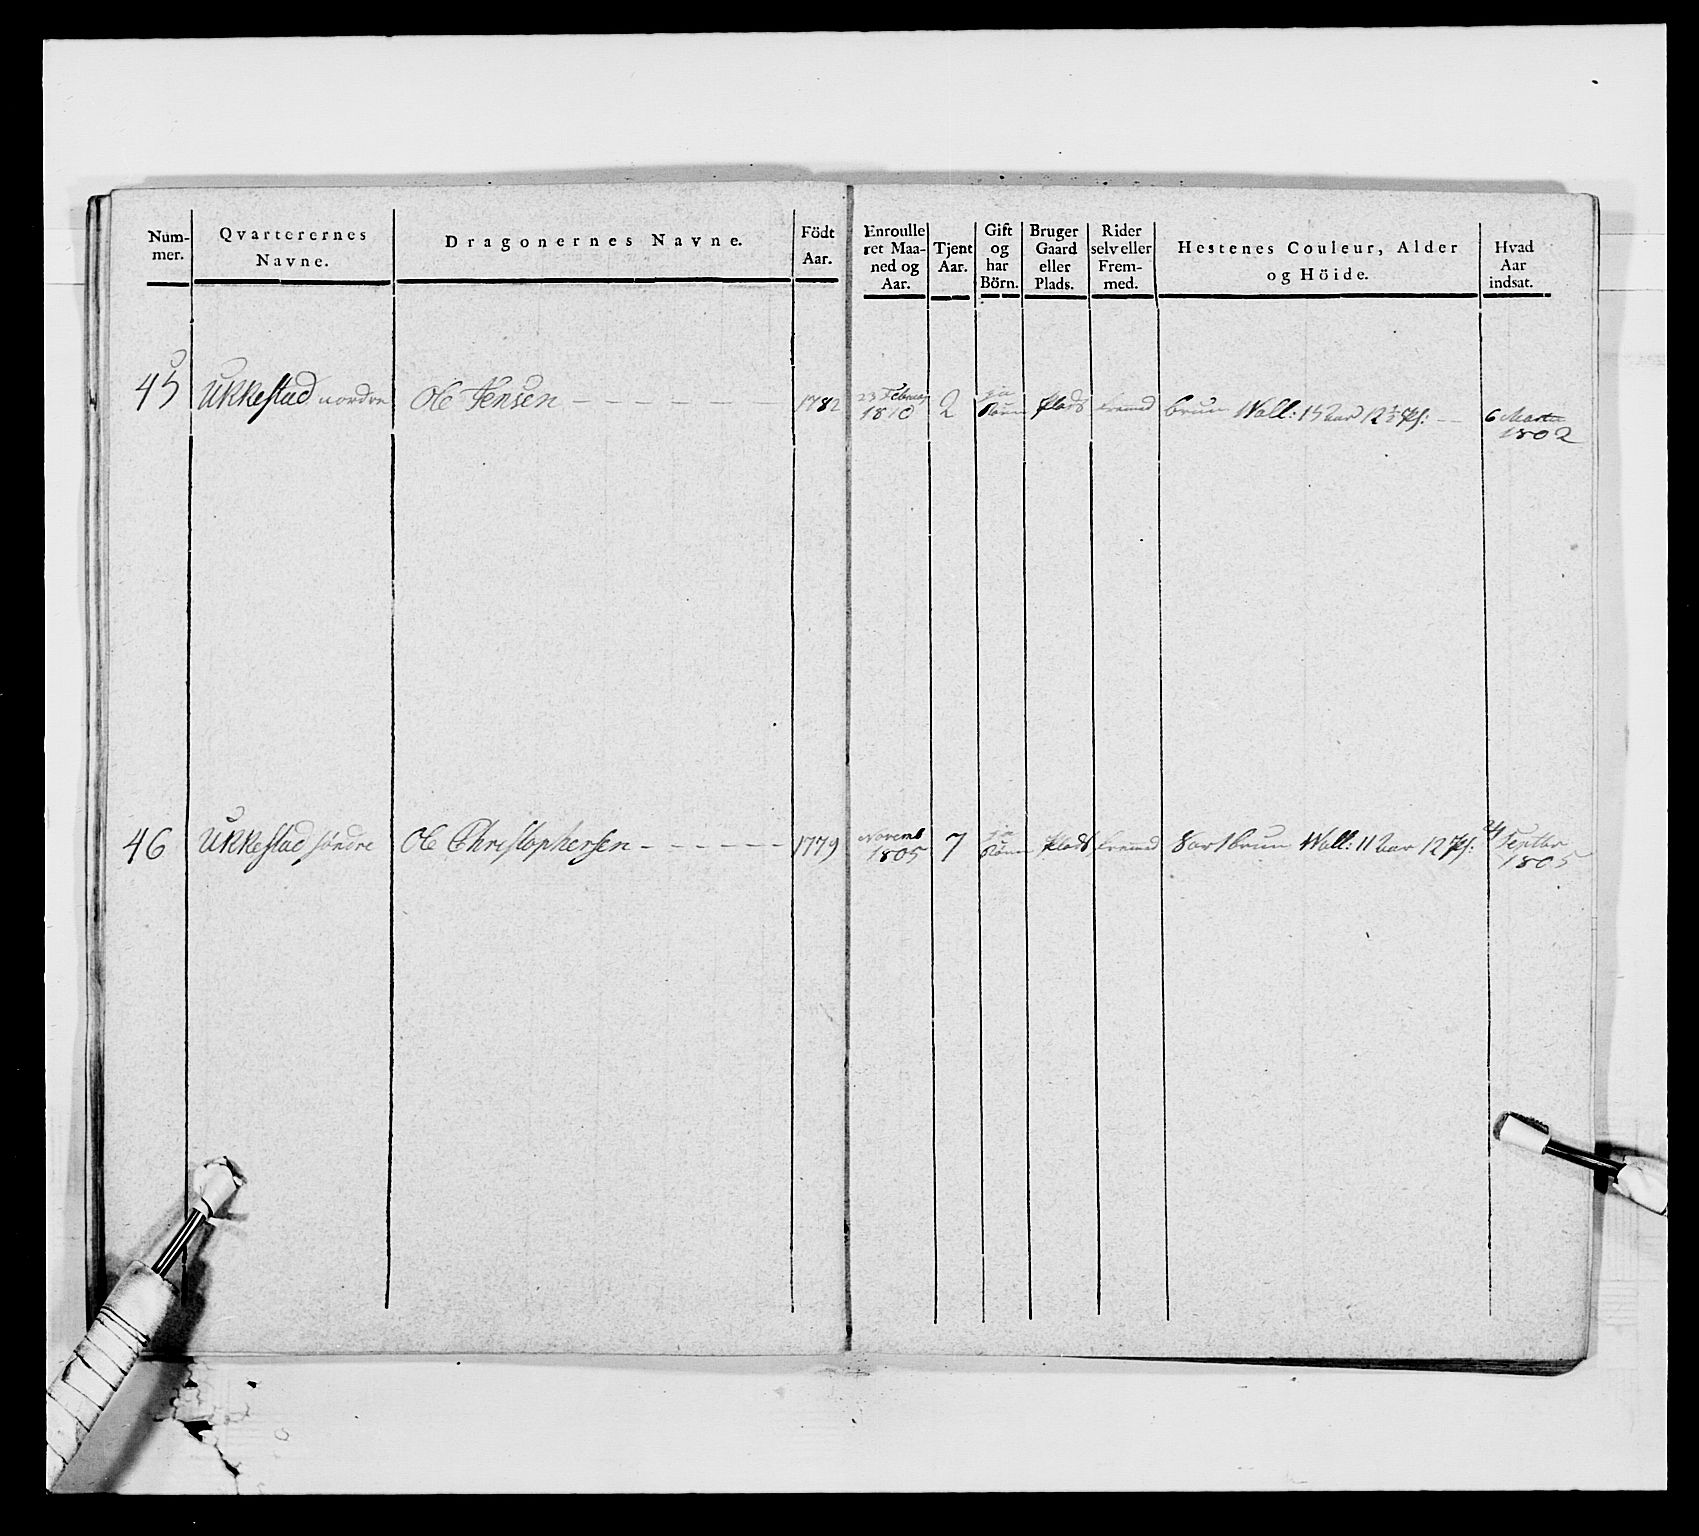 Num-
mer.
Qvarterernes
Navne.
Dragonernes Navne.
Födt
Aar.
Enroulle
ret Maa-
ned og
Aar.
Tjent
Aar.
Gift
og
har
Börn.
Bruger
Gaard
eller
Plads.
Rider
selv eller
Frem-
med.
Hestenes Couleur, Alder
og Höide.
Hvad
Aar
indsat.
45 Ukkestad nordre Ole Jensen 1782
23 Februar
1810
2
ja
Plads fremed brun Wall: 15 Aar 12½ Pf:
6 Martii
1802
46 Ukkestad söndre Ole Christophersen 1779
Novemb
1805
7
ja
Plads fremed Sortbrun Wall: 11 Aar 12 Pf:
Septbr
1805